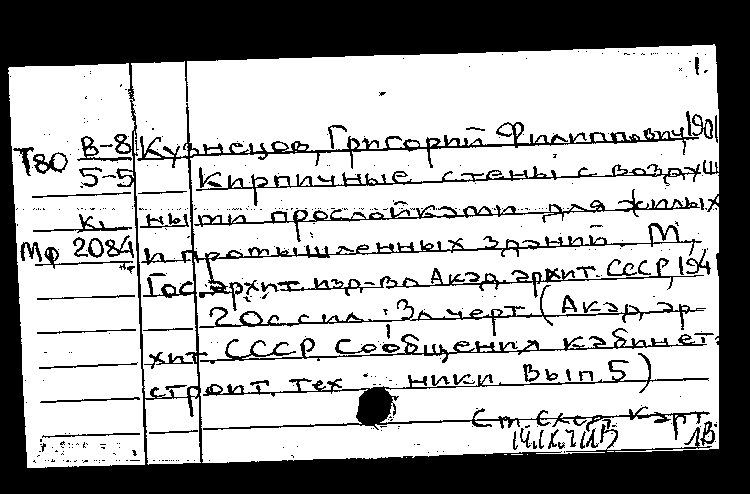 1.
Т80 В-8 Кузнецов, Григорий Филиппович, 190
5-5 Кирпичные стены с воздуш
к. ными прослойками для жилых
Мф 2084 и промышленных зданий. М.,
Гос. архит. изд-во Акад. архит. СССР, 194
20с с ил.; 3л черт. (Акад. ар-
хит. СССР. Сообщения кабинет
строит. тех ники. Вып. 5)
См. след. карт.
1В